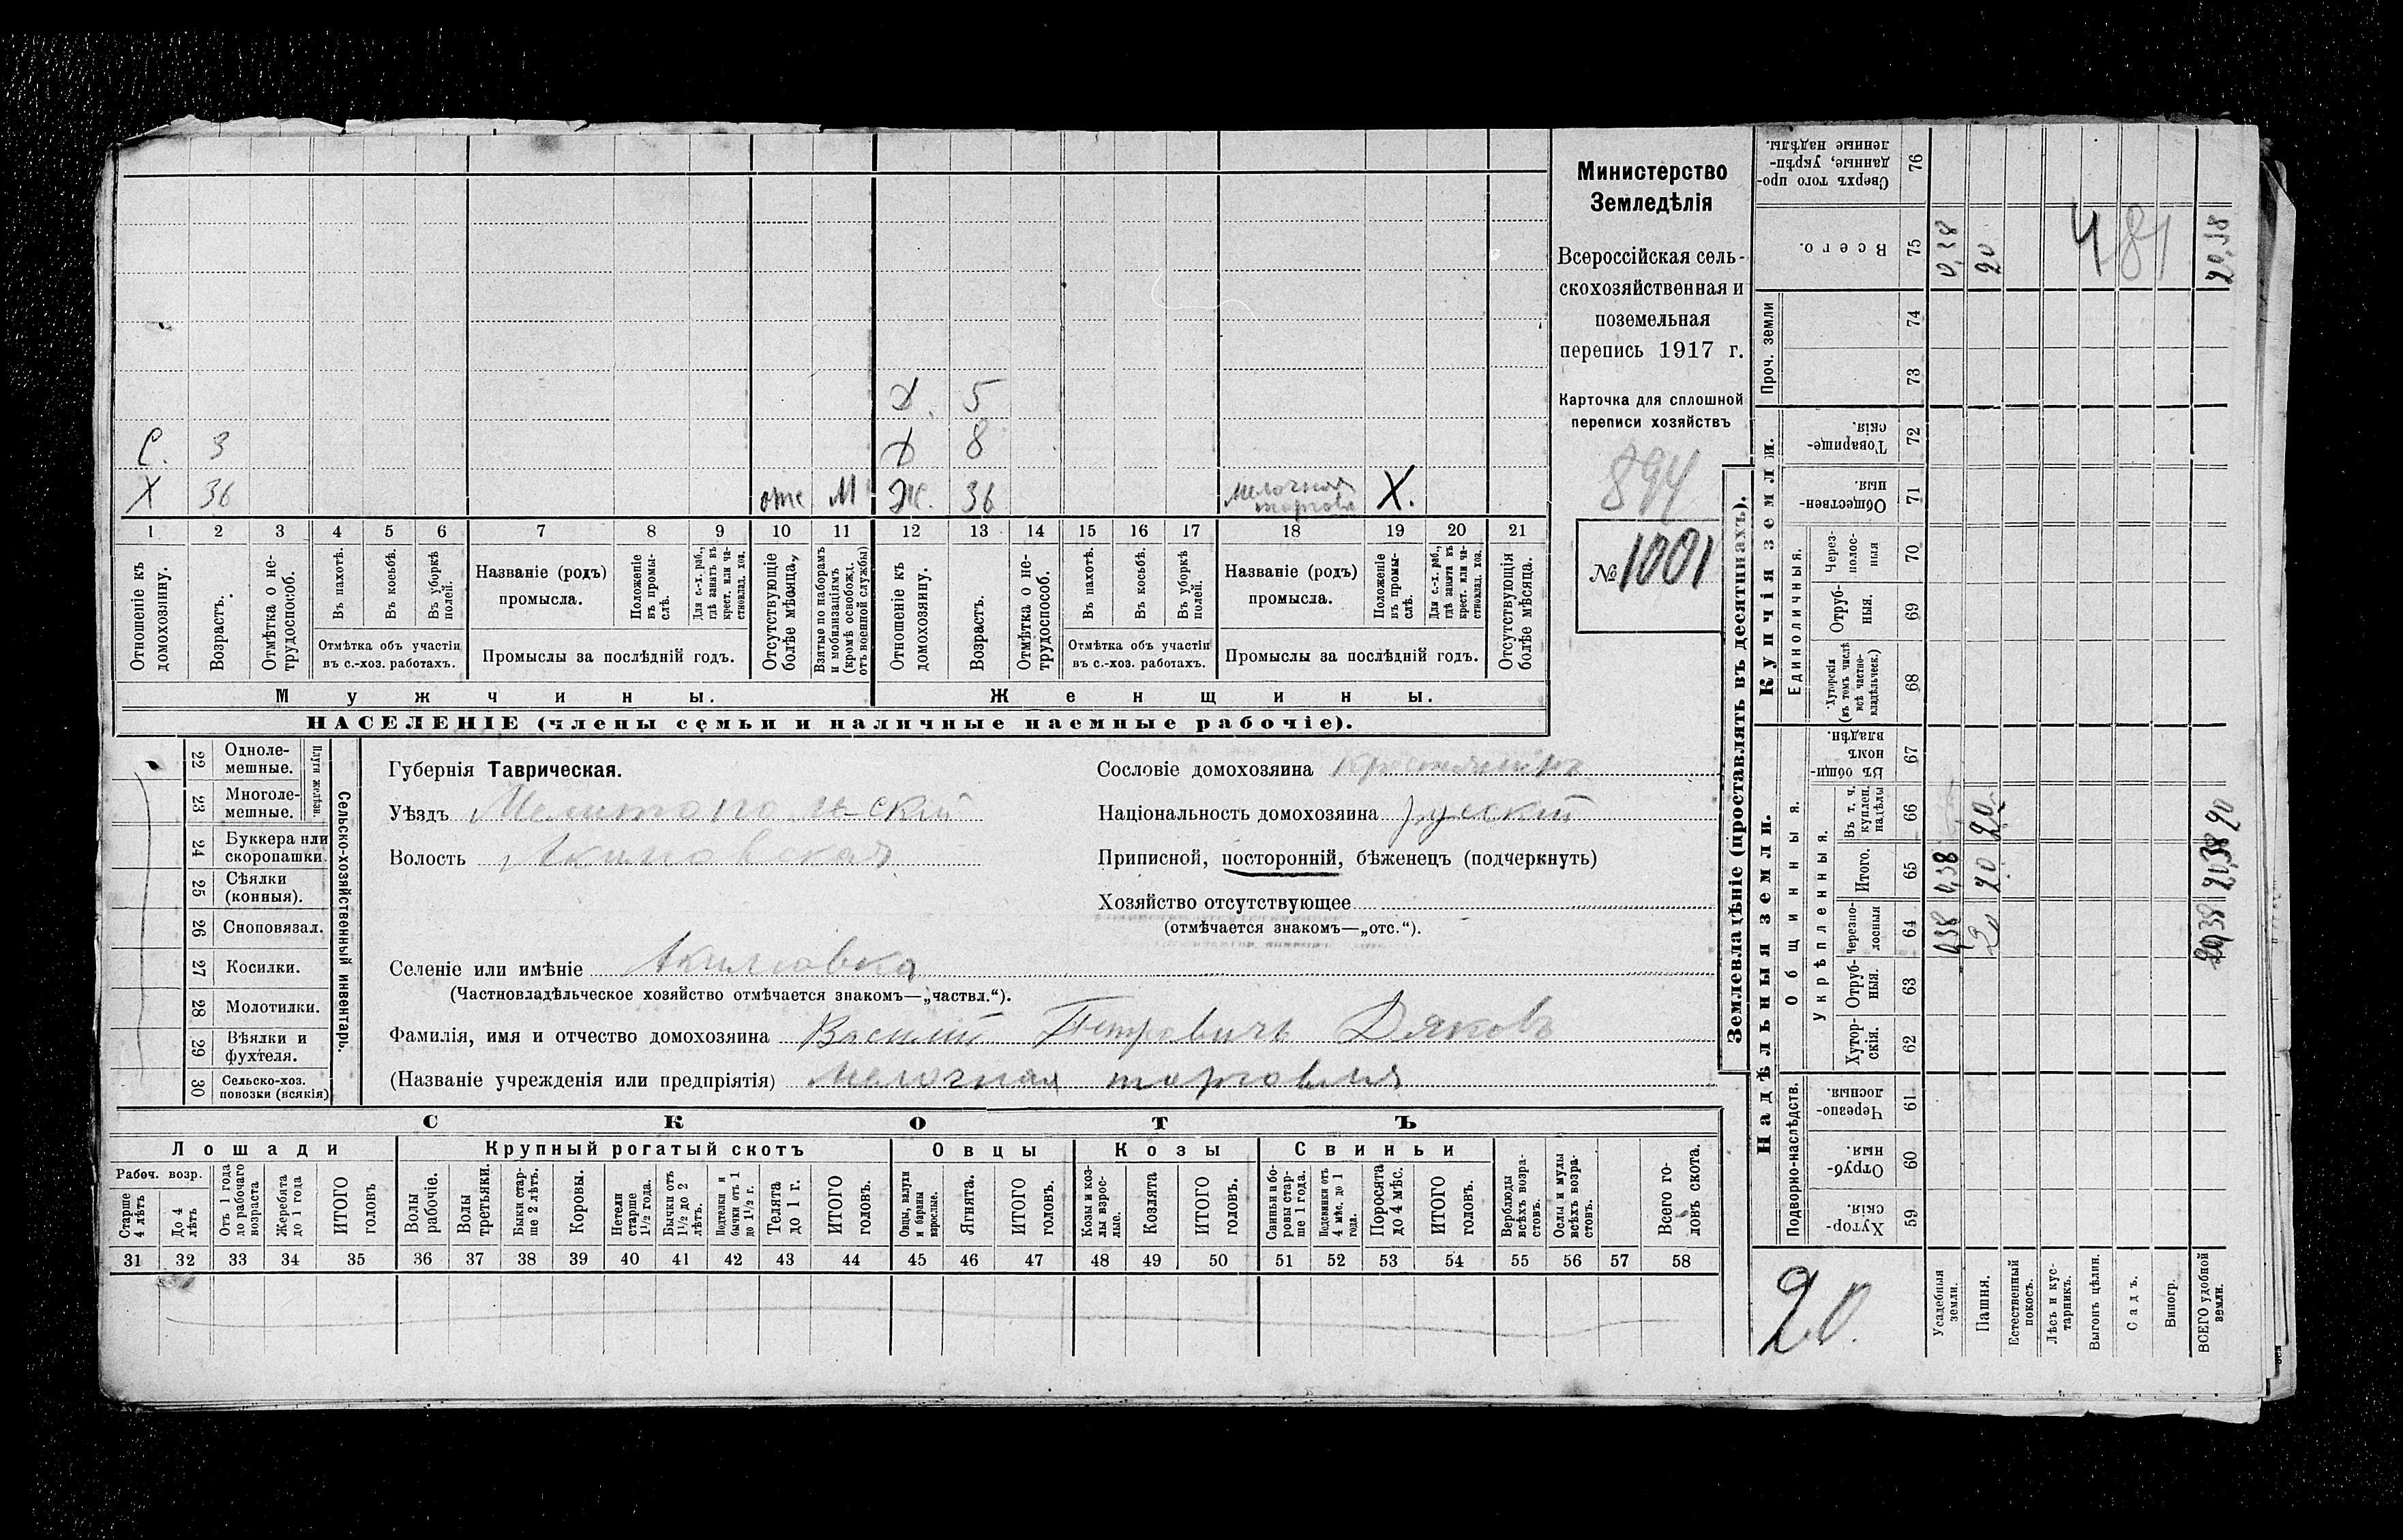 Д. 5
С. 3 Д 8
Х 36 отс М Ж. 36 мелочная торговл Х.
1 2 3 4 5 6 7 8 9 10 11 12 13 14 15 16 17 18 19 20 21
Отношеніе къ домохозяину.
Возрастъ.
Отмѣтка о не-трудоспособ.
Въ пахотѣ.
Въ косьбѣ.
Въ уборкѣ полей.
Отмѣтка объ участіи
въ с.-хоз. работахъ.
Названіе (родъ)
промысла.
Положеніе въ промы-слѣ.
Для с.-х. раб., гдѣ занятъ въ крест. или ча-стновлад. хоз.
Промыслы за послѣдній годъ.
Отсутствующіе болѣе мѣсяца.
Взятые по наборамъ и мобилизаціямъ (кромѣ освобожд. отъ военной службы)
Отношеніе къ домохозяину.
Возрастъ.
Отмѣтка о не-трудоспособ.
Въ пахотѣ.
Въ косьбѣ.
Въ уборкѣ полей.
Отмѣтка объ участіи
въ с.-хоз. работахъ.
Названіе (родъ)
промысла.
Положеніе въ промы-слѣ.
Для с.-х. раб., гдѣ занята въ крест. или ча-стновлад. хоз.
Промыслы за послѣдній годъ.
Отсутствующія болѣе мѣсяца.
Мужчины. Женщины.
НАСЕЛЕНІЕ (члены семьи и наличные наемные рабочіе).
Министерство
Земледѣлія
Всероссійская сель-
скохозяйственная и
поземельная
перепись 1917 г.
Карточка для сплошной
переписи хозяйствъ
894
№ 1001
Сельско-хозяйственный инвентарь.
Плуги желѣзн.
22 Одноле-мешные.
23 Многоле-мешные.
24 Буккера или скоропашки.
25 Сѣялки (конныя).
26 Сноповязал.
27 Косилки.
28 Молотилки.
29 Вѣялки и фухтеля.
30 Сельско-хоз. повозки (всякія)
Губернія Таврическая.
Уѣздъ Мелитопольскій
Волость Акимовская
Селеніе или имѣніе Акимовка
(Частновладѣльческое хозяйство отмѣчается знакомъ—„частвл.“).
Сословіе домохозяина крестьянинъ
Національность домохозяина русскій
Приписной, посторонній, бѣженецъ (подчеркнуть)
Хозяйство отсутствующее
(отмѣчается знакомъ—„отс.“).
Фамилія, имя и отчество домохозяина Василій Петровичъ Дяковъ
(Названіе учрежденія или предпріятія) Мелочная торговля
СКОТЪ
Лошади Крупный рогатый скотъ Овцы Козы Свиньи
Рабоч. возр.
Старше 4 лѣтъ
До 4 лѣтъ
Отъ 1 года до рабочаго возраста
Жеребята до 1 года
ИТОГО головъ
Волы рабочіе.
Волы третьяки.
Быки стар-ше 2 лѣтъ.
Коровы.
Нетели старше 1½ года.
Бычки отъ 1½ до 2 лѣтъ.
Подтелки и бычки отъ 1 до 1½ г.
Телята до 1 г.
ИТОГО головъ.
Овцы, валухи и бараны взрослые.
Ягнята.
ИТОГО головъ.
Козы и коз-лы взрос-лые.
Козлята
ИТОГО головъ.
Свиньи и бо-ровы стар-ше 1 года.
Подсвинки отъ 4 мѣс. до 1 года.
Поросята до 4 мѣс.
ИТОГО головъ.
Верблюды всѣхъ возра-стовъ.
Ослы и мулы всѣхъ возра-стовъ.
Всего го-ловъ скота.
31 32 33 34 35 36 37 38 39 40 41 42 43 44 45 46 47 48 49 50 51 52 53 54 55 56 57 58
Землевладѣніе (проставлять въ десятинахъ).
Надѣльныя земли. Купчія земли. Проч. земли
Подворно-наслѣдств.
Общинныя.
Укрѣпленныя.
Единоличныя.
59 Хутор-скія.
60 Отруб-ныя.
61 Черезпо-лосныя.
62 Хутор-скія.
63 Отруб-ныя.
64 Черезпо-лосныя
65 Итого.
66 Въ т. ч. куплен. надѣлы
67 Въ общи-номъ владѣн.
68 Хуторскія (въ томъ числѣ всѣ частно-владѣльческ.)
69 Отруб-ныя.
70 Через-полос-ныя
71 Обществен-ныя.
72 Товарище-скія.
73
74
75 Всего.
76 Сверхъ того про-данные, укрѣп-ленные надѣлы.
Усадебныя земли. 0,38 0,38 0,38
Пашня. 20 20 20 20
Естественный покосъ.
Лѣсъ и кус-тарникъ.
Выгонъ цѣлин.
Садъ.
Виногр.
ВСЕГО удобной земли. 20,38 20,38 20 20,38
481
20.